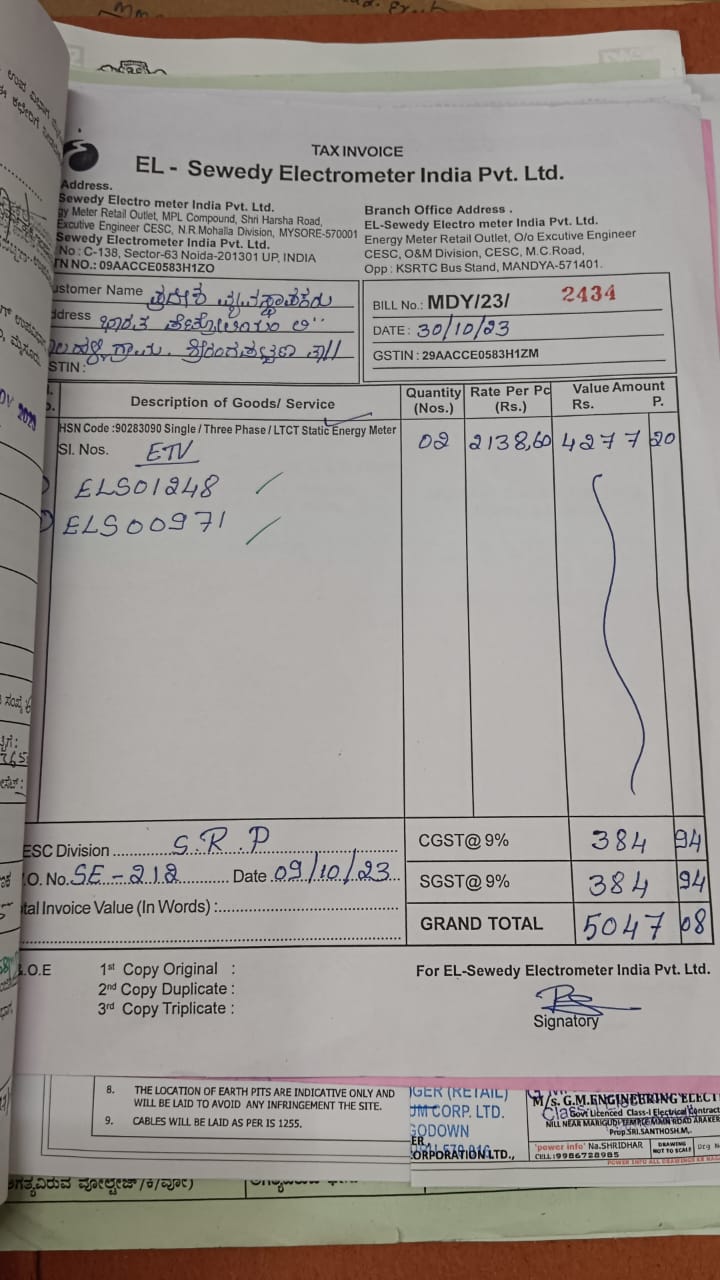 TAX INVOICE
EL - Sewedy Electrometer India Pvt. Ltd.
Address.
Sewedy Electro meter India Pvt. Ltd.
gy Meter Retail Outlet, MPL Compound, Shri Harsha Road,
Excutive Engineer CESC, N.R.Mohalla Division, MYSORE-570001
Sewedy Electrometer India Pvt. Ltd.
No : C-138, Sector-63 Noida-201301 UP, INDIA
TN NO.: 09AACCE0583H1ZO
Branch Office Address .
EL-Sewedy Electro meter India Pvt. Ltd.
Energy Meter Retail Outlet, O/o Excutive Engineer
CESC, O&M Division, CESC, M.C.Road,
Opp : KSRTC Bus Stand, MANDYA-571401.
ustomer Name
ddress ಭಾರತ
STIN:
BILL No.: MDY/23/ 2434
DATE: 30/10/23
GSTIN: 29AACCE0583H1ZM
Description of Goods/ Service
Quantity (Nos.)
Rate Per Pc (Rs.)
Value Amount Rs. P.
HSN Code :90283090 Single / Three Phase / LTCT Static Energy Meter
Sl. Nos. ETV
02 2138,60 4277 20
ELS01248
ELS00971
ESC Division S.R.P
.O. No. SE-212 Date 09/10/23
tal Invoice Value (In Words) :
CGST@ 9% 384 94
SGST@ 9% 384 94
GRAND TOTAL 5047 08
.O.E
1st Copy Original :
2nd Copy Duplicate :
3rd Copy Triplicate :
For EL-Sewedy Electrometer India Pvt. Ltd.
Signatory
8. THE LOCATION OF EARTH PITS ARE INDICATIVE ONLY AND
WILL BE LAID TO AVOID ANY INFRINGEMENT THE SITE.
9. CABLES WILL BE LAID AS PER IS 1255.
GER (RETAIL)
UM CORP. LTD.
GODOWN
ORPORATION LTD.,
M/s. G.M.ENGINEERING ELECT
Govt Licenced Class-I Electrical Contract
Prop:SRI.SANTHOSH.M,.
'power info' Na.SHRIDHAR
CELL :9986728985
DRAWING
NOT TO SCALE
Drg N